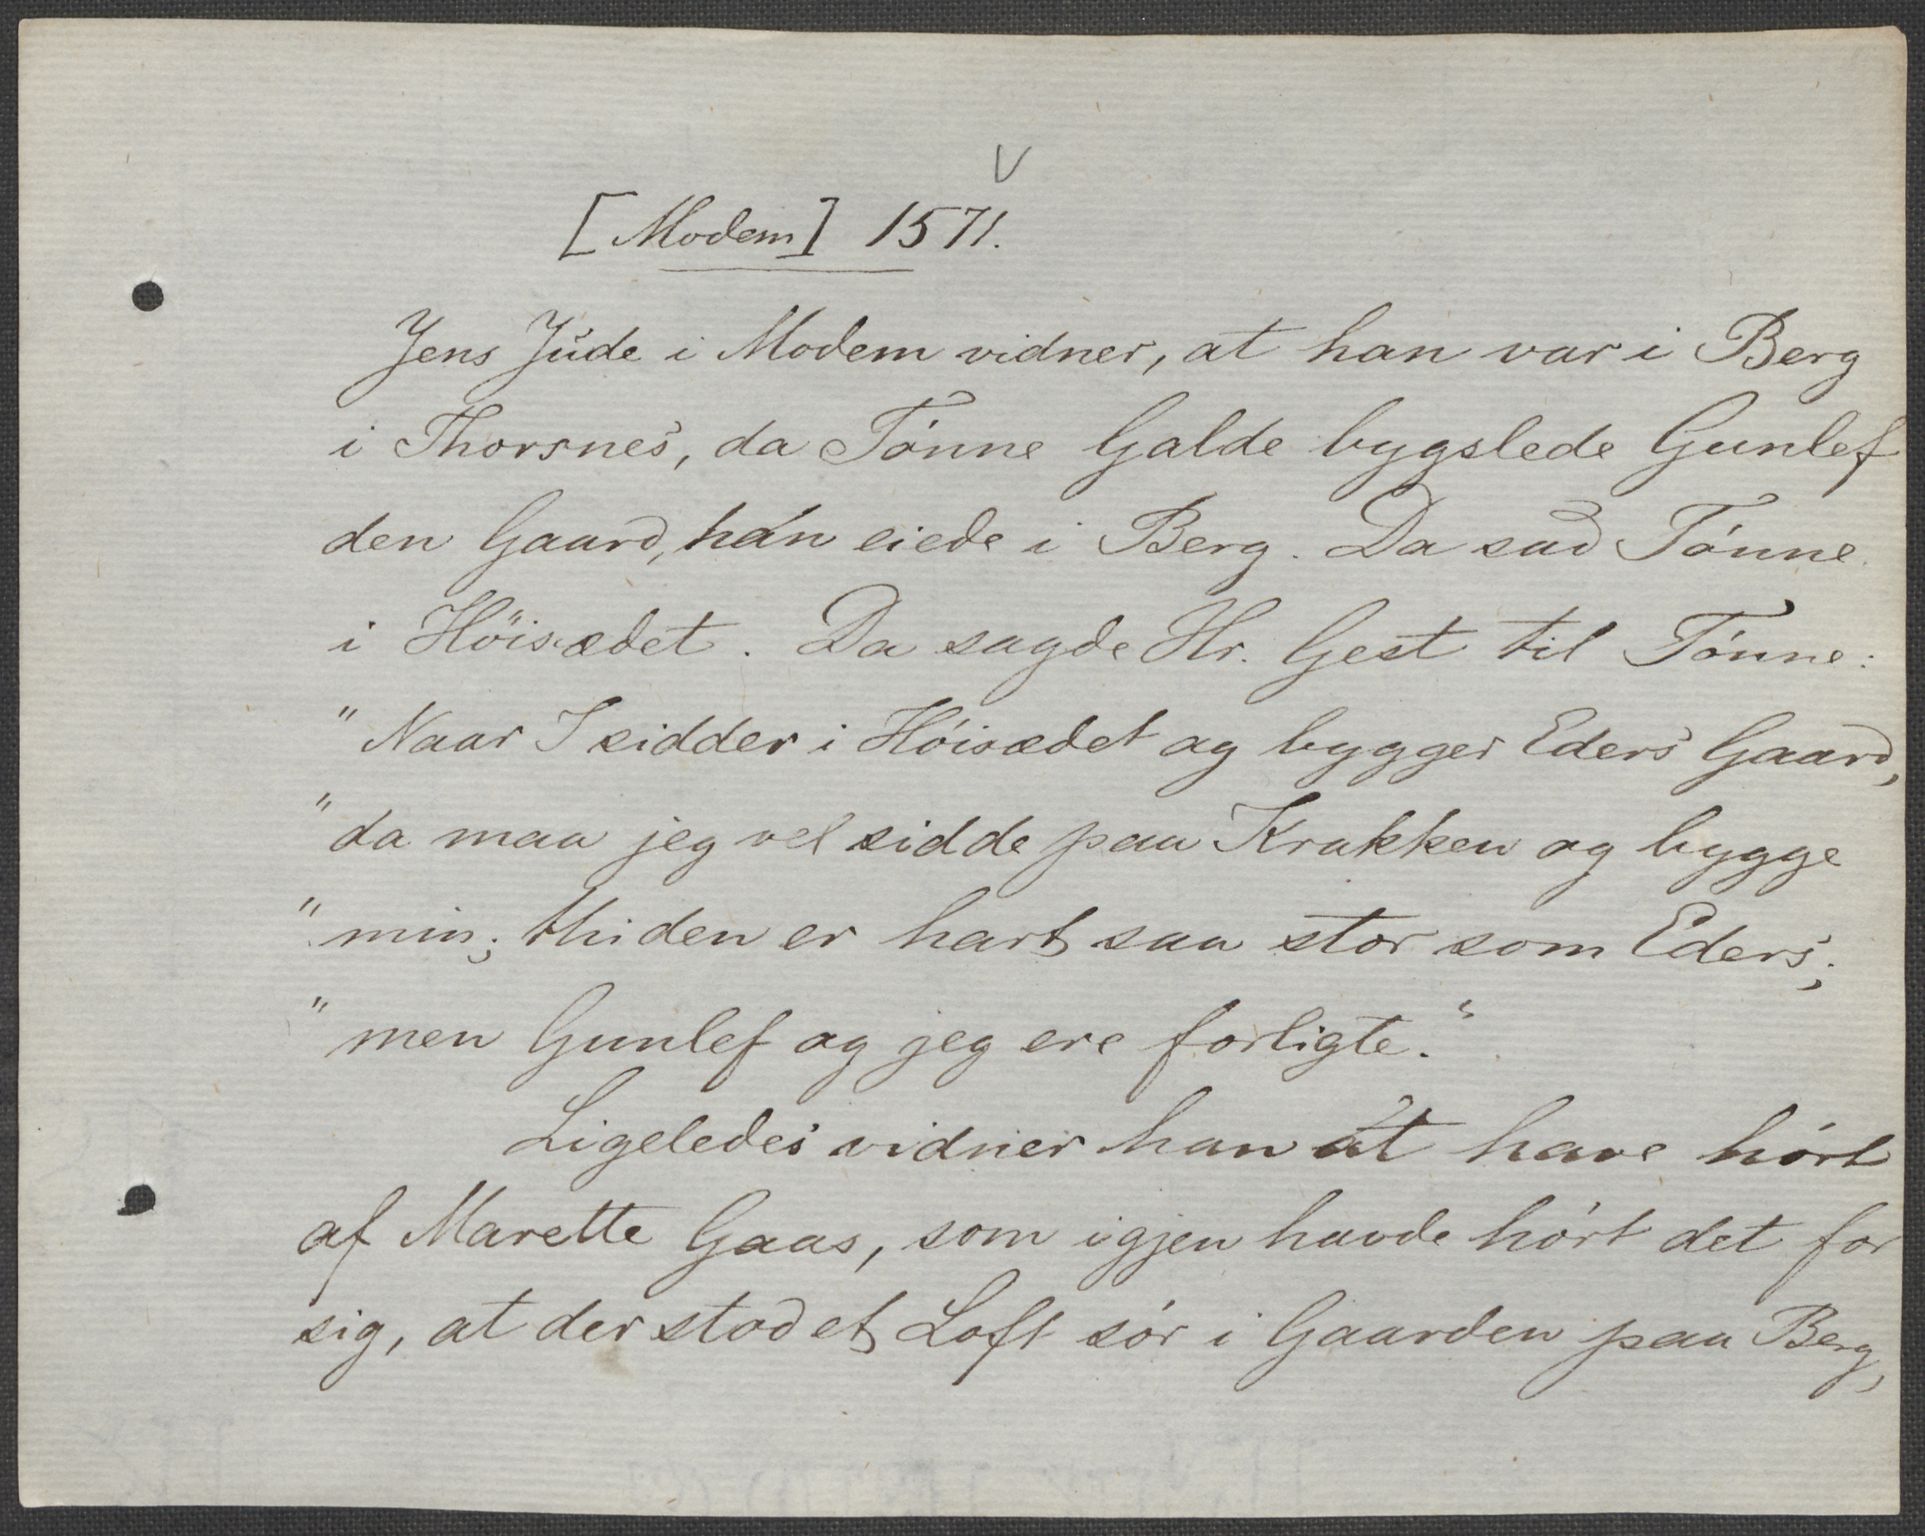 V
[Modem] 1571.
Jens Jude i Modem vidner, at han var i Berg
i Thorsnes, da Tönne Galde bygslede Gunlef
den Gaard, han eiede i Berg. Da sad Tönne
i Höisædet. Da sagde Hr. Gest til Tönne:
"Naar I sidder i Höisædet og bygger Eders Gaard,
"da maa jeg vel sidde paa Krakken og bygge
"min; thi den er hart saa stor som Eders;
"men Gunlef og jeg ere forligte."
Ligeledes vidner han at have hört
af Marette Gaas, som igjen havde hört det for
sig, at der stod et Loft sör i Gaarden paa Berg,